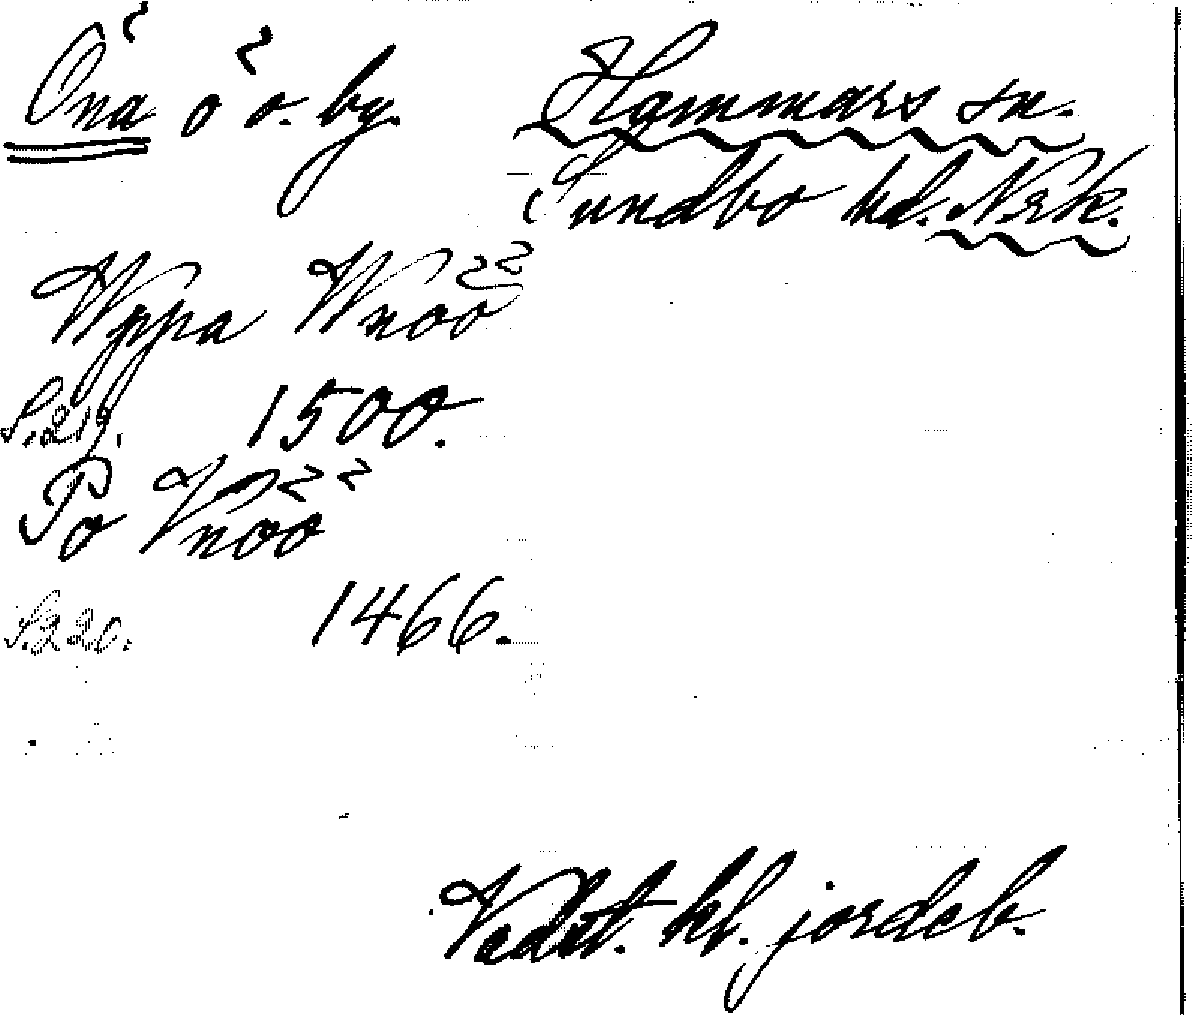 Önå ö o. by. Hammars sn.
Sundbo hd. Nrk.
Wppa Wnöö
S. 219. 1500.
Po Vnöö
S. 220. 1466.
Vadst. kl. jordeb.